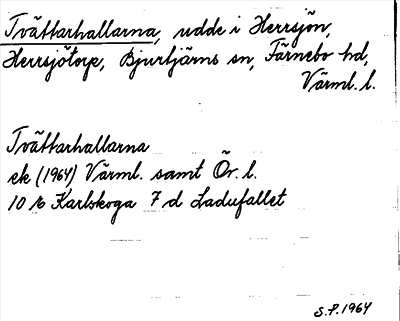 Tvättarhallarna, udde i Herrsjön,
Herrsjötorp, Bjurtjärns sn, Färnebo hd,
Värml. l.
Tvättarhallarna
ek (1964) Värml. samt Ör. l.
10 16 Karlskoga 7 d Ladufallet
S.P. 1964